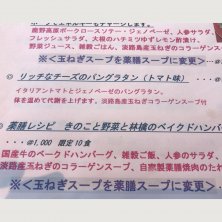 鹿野高原ポークロースソテー・ジェノベーゼ、人参サラダ、
フレッシュサラダ、大根のハチミツゆずレモン酢漬け、
野菜ジュース、雑穀ごはん、淡路島産玉ねぎのコラーゲンスープ
≪※玉ねぎスープを薬膳スープに変更→
◎ リッチなチーズのパングラタン（トマト味） ・・・
イタリアントマトとジェノベーゼのパングラタン。
体を温めて代謝を上げます。淡路島産玉ねぎのコラーゲンスープ付
◎ 薬膳レシピ きのこと野菜と林檎のベイクドハンバ
・・・@1,000 限定10食
国産牛のベイクドハンバーグ、雑穀ご飯、人参のサラダ、
淡路島産玉ねぎのコラーゲンスープ、自家製薬膳焼肉のたれ
※＜玉ねぎスープを薬膳スープに変更→